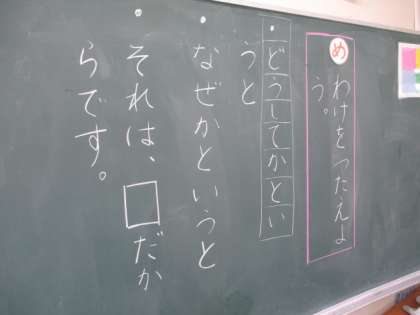 め
わけをつたえよ
う。
・どうしてかとい
うと
・なぜかというと
・それは、□だか
らです。